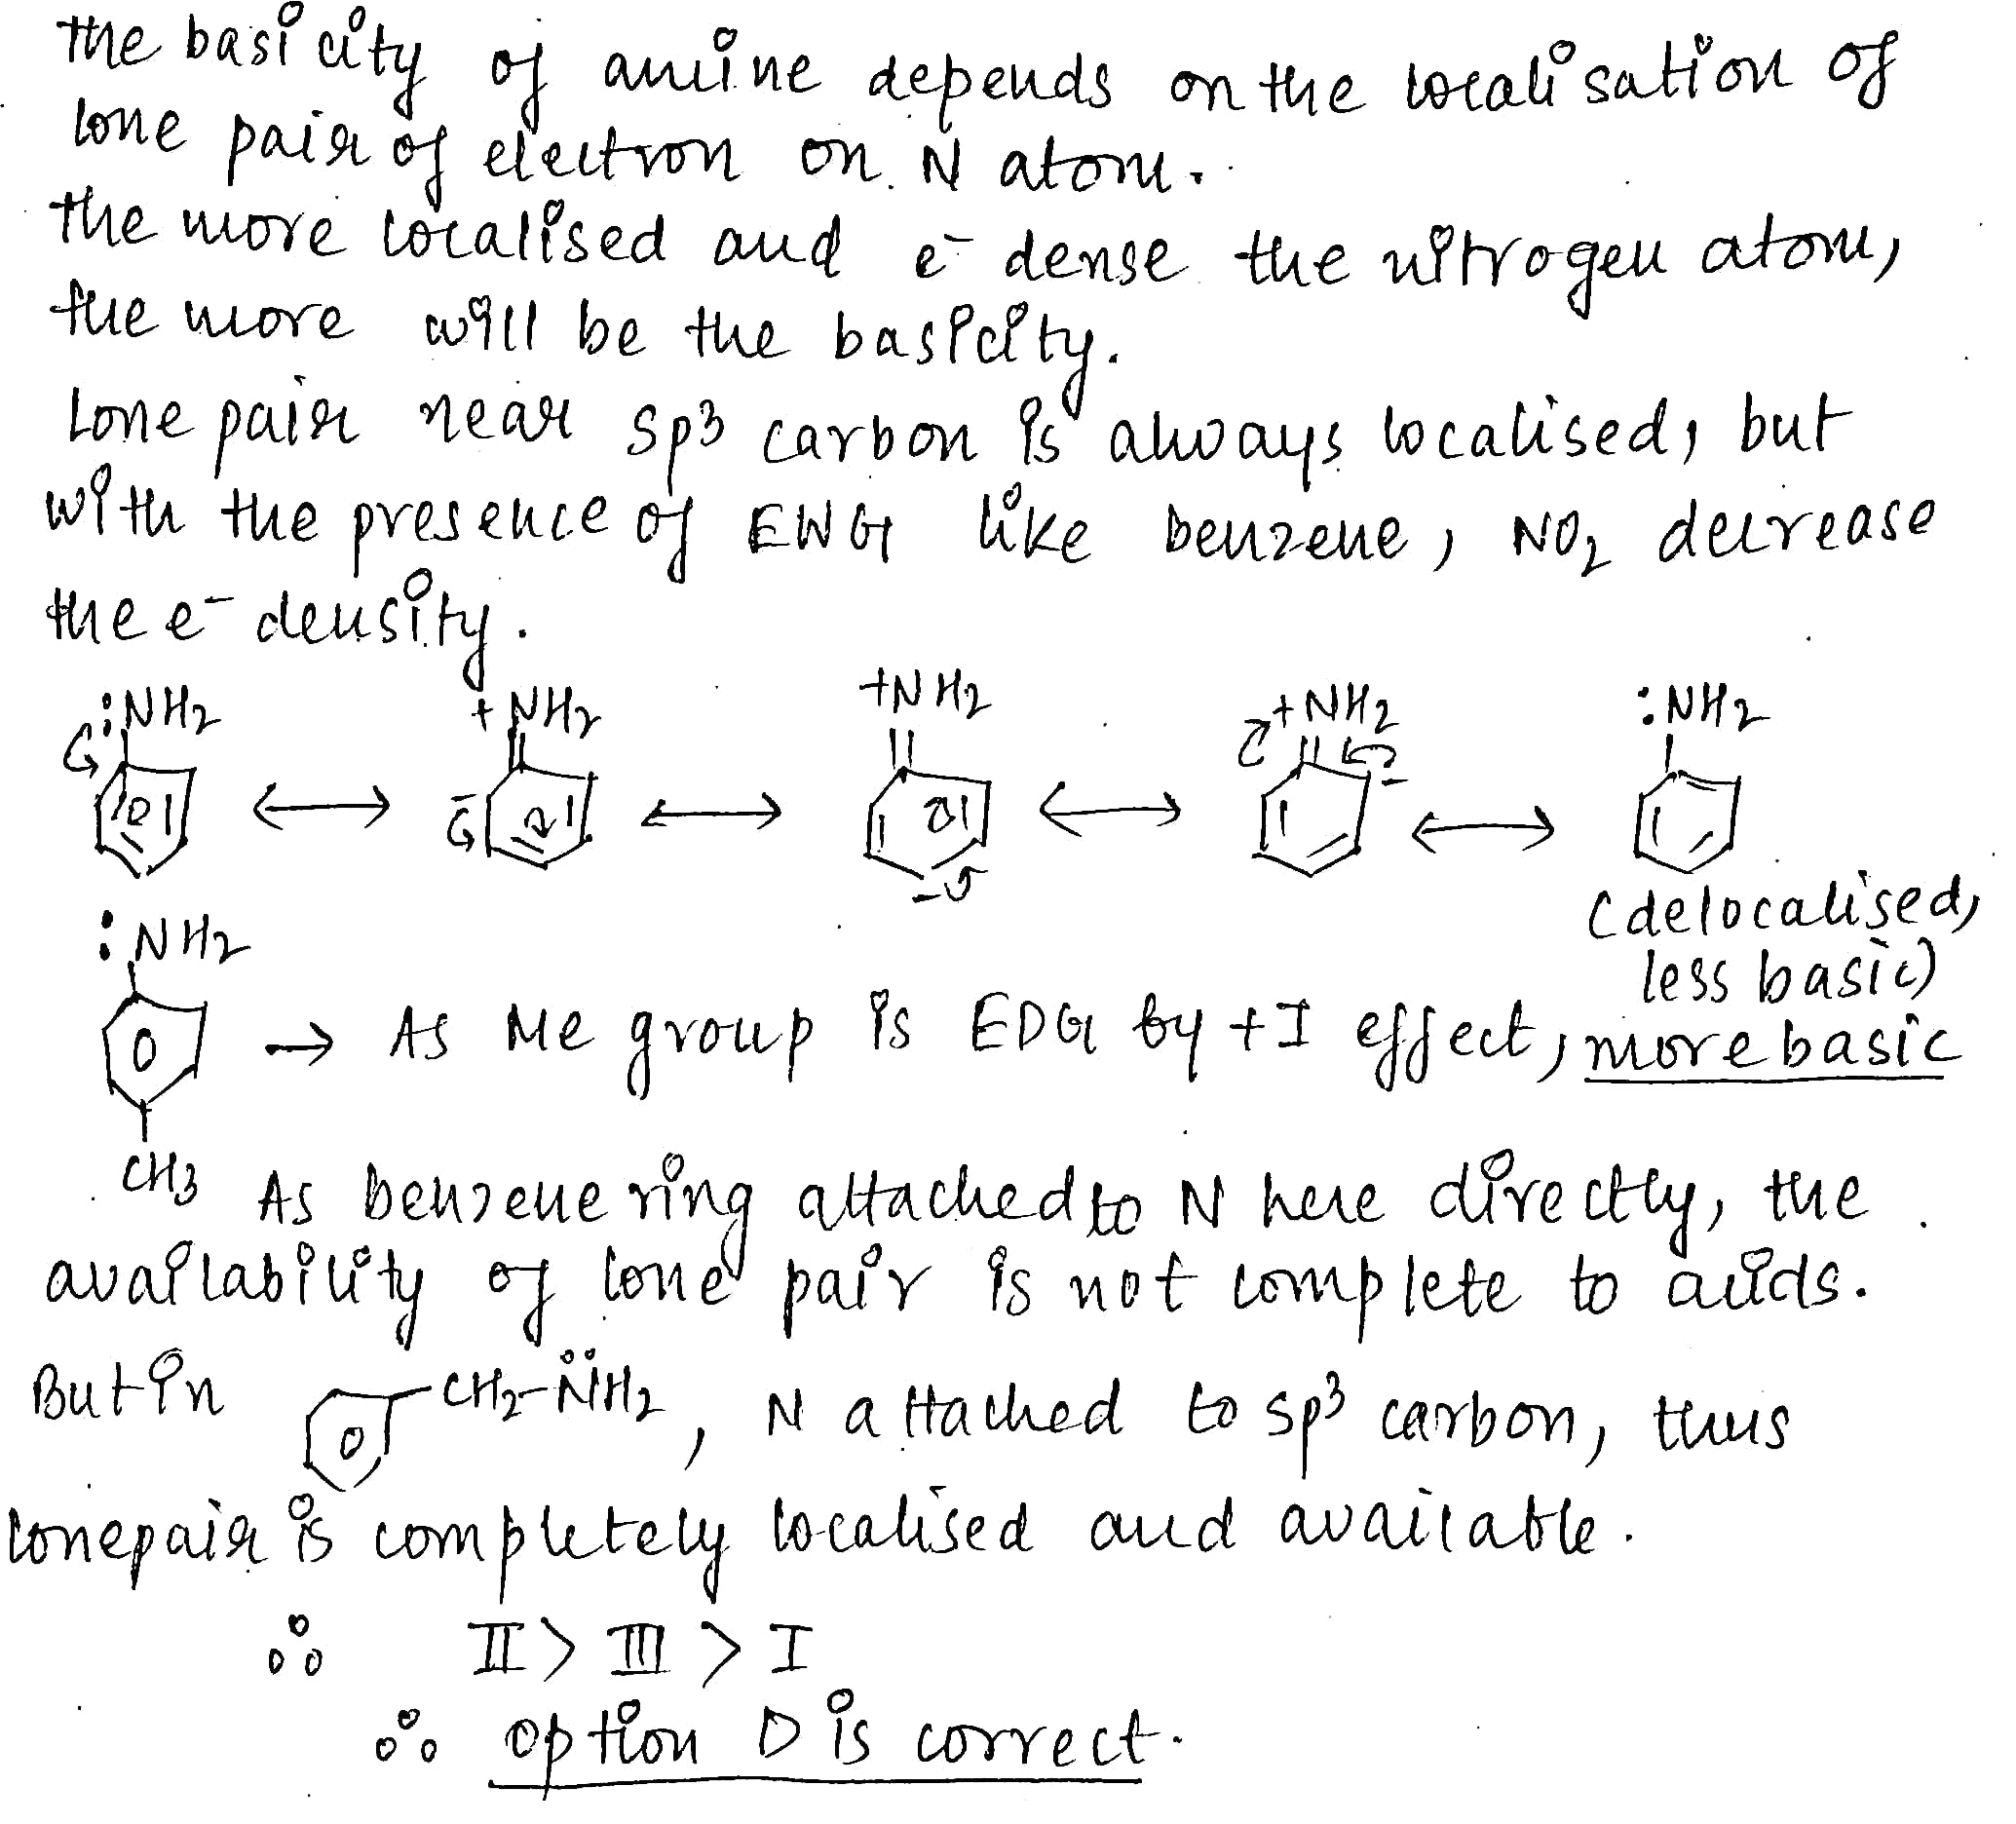 The basicity of amine depends on the localisation of
lone pair of electron on N atom.
The more localised and e⁻ dense the nitrogen atom,
the more will be the basicity.
Lone pair near sp³ carbon is always localised, but
with the presence of EWG like benzene, NO₂ decrease
the e⁻ density.
:NH₂ +NH₂ +NH₂ +NH₂ :NH₂
(delocalised,
less basic)
:NH₂
→ As Me group is EDG by +I effect, more basic
CH₃
As benzene ring attached to N here directly, the
availability of lone pair is not complete to acids.
But in CH₂-N̈H₂, N attached to sp³ carbon, thus
lonepair is completely localised and available.
∴ II > III > I
∴ option D is correct.